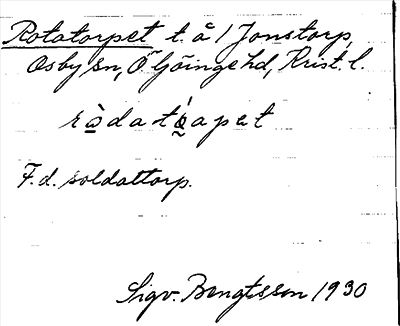 Rotatorpet t. å 1 Jonstorp,
Osby sn, Ö Göinge hd, Krist. l.
F.d. soldattorp.
Sigv. Bengtsson 1930